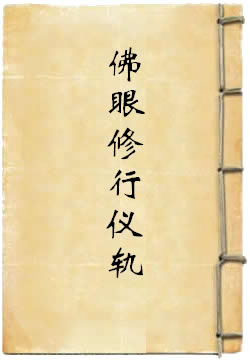 佛眼修行仪轨